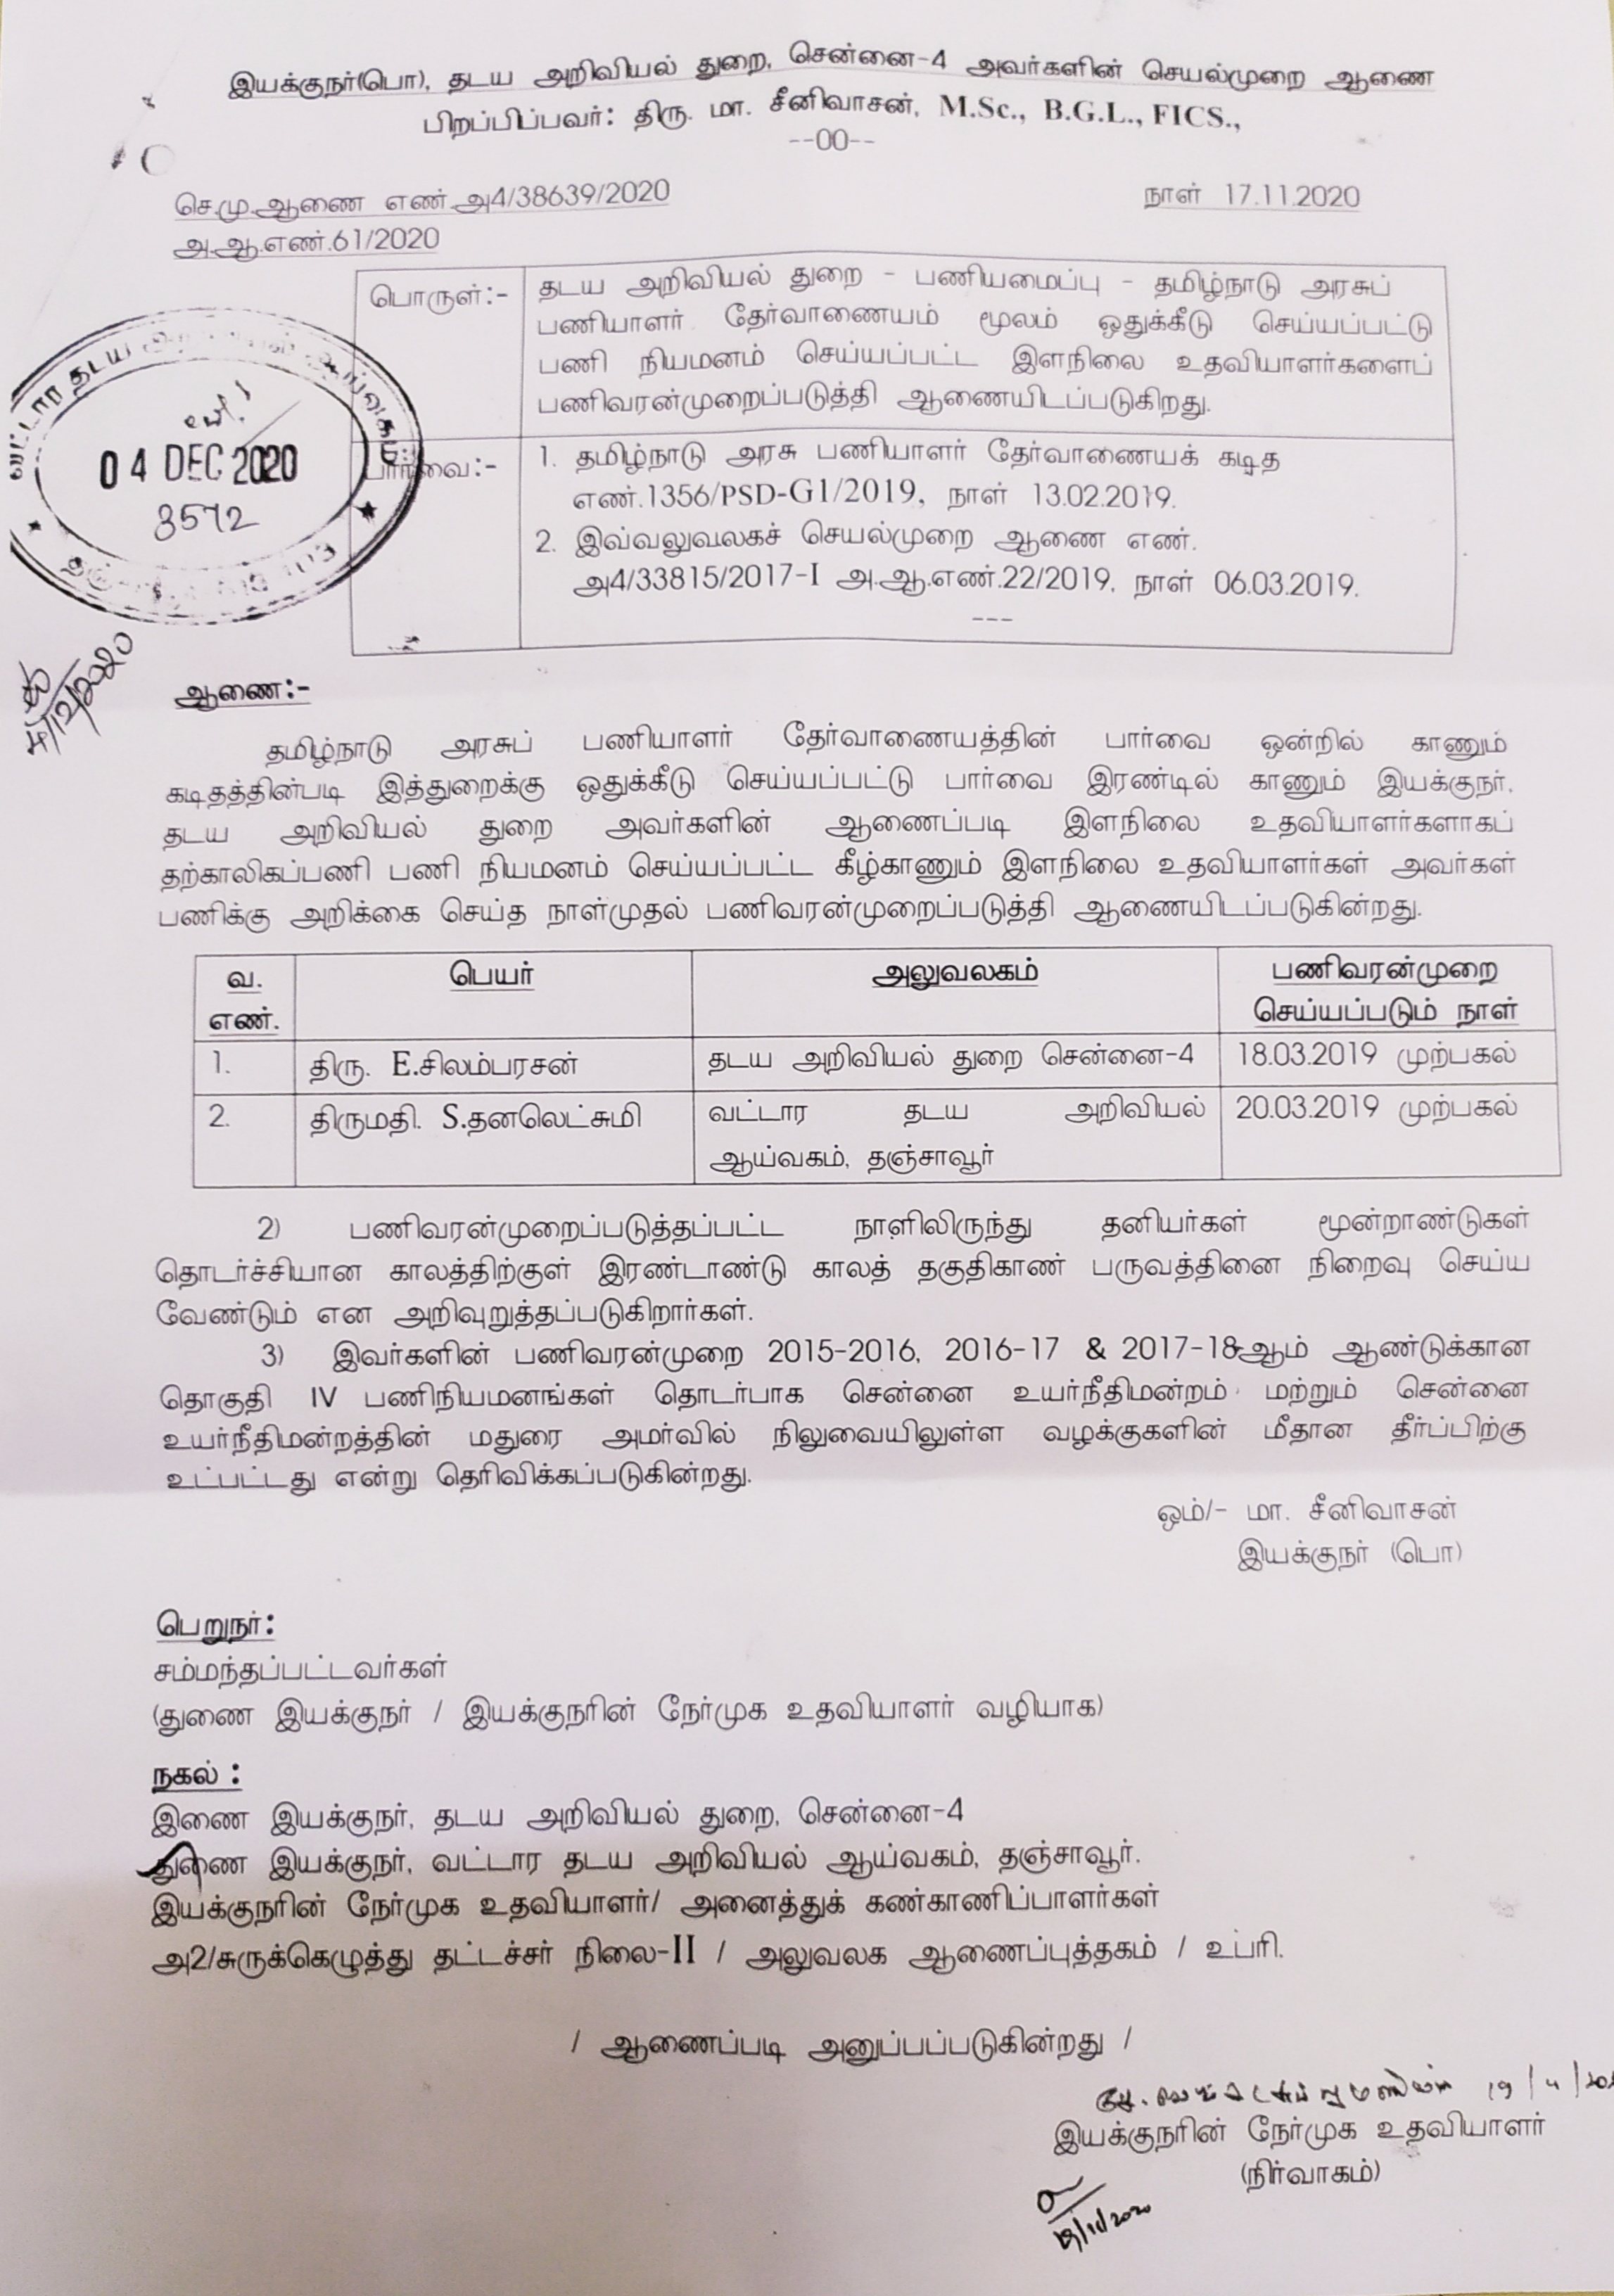 இயக்குநர்(பொ), தடய அறிவியல் துறை, சென்னை-4 அவர்களின் செயல்முறை ஆணை
பிறப்பிப்பவர்: திரு. மா. சீனிவாசன், M.Sc., B.G.L., FICS.,
--00--
செ.மு.ஆணை எண்.அ4/38639/2020
நாள் 17.11.2020
அ.ஆ.எண்.61/2020
பொருள்:-
தடய அறிவியல் துறை - பணியமைப்பு - தமிழ்நாடு அரசுப்
பணியாளர் தேர்வாணையம் மூலம் ஒதுக்கீடு செய்யப்பட்டு
பணி நியமனம் செய்யப்பட்ட இளநிலை உதவியாளர்களைப்
பணிவரன்முறைப்படுத்தி ஆணையிடப்படுகிறது.
பார்வை:-
1. தமிழ்நாடு அரசு பணியாளர் தேர்வாணையக் கடித
எண்.1356/PSD-G1/2019, நாள் 13.02.2019.
2. இவ்வலுவலகச் செயல்முறை ஆணை எண்.
அ4/33815/2017-I அ.ஆ.எண்.22/2019, நாள் 06.03.2019.
---
வட்டார தடய
04 DEC 2020
3572
4/12/2020
ஆணை:-
தமிழ்நாடு அரசுப் பணியாளர் தேர்வாணையத்தின் பார்வை ஒன்றில் காணும்
கடிதத்தின்படி இத்துறைக்கு ஒதுக்கீடு செய்யப்பட்டு பார்வை இரண்டில் காணும் இயக்குநர்,
தடய அறிவியல் துறை அவர்களின் ஆணைப்படி இளநிலை உதவியாளர்களாகப்
தற்காலிகப்பணி பணி நியமனம் செய்யப்பட்ட கீழ்காணும் இளநிலை உதவியாளர்கள் அவர்கள்
பணிக்கு அறிக்கை செய்த நாள்முதல் பணிவரன்முறைப்படுத்தி ஆணையிடப்படுகின்றது.
வ. எண்.
பெயர்
அலுவலகம்
பணிவரன்முறை செய்யப்படும் நாள்
1.
திரு. E.சிலம்பரசன்
தடய அறிவியல் துறை சென்னை-4
18.03.2019 முற்பகல்
2.
திருமதி. S.தனலெட்சுமி
வட்டார தடய அறிவியல்
ஆய்வகம், தஞ்சாவூர்
20.03.2019 முற்பகல்
2) பணிவரன்முறைப்படுத்தப்பட்ட நாளிலிருந்து தனியர்கள் மூன்றாண்டுகள்
தொடர்ச்சியான காலத்திற்குள் இரண்டாண்டு காலத் தகுதிகாண் பருவத்தினை நிறைவு செய்ய
வேண்டும் என அறிவுறுத்தப்படுகிறார்கள்.
3) இவர்களின் பணிவரன்முறை 2015-2016, 2016-17 & 2017-18-ஆம் ஆண்டுக்கான
தொகுதி IV பணிநியமனங்கள் தொடர்பாக சென்னை உயர்நீதிமன்றம் மற்றும் சென்னை
உயர்நீதிமன்றத்தின் மதுரை அமர்வில் நிலுவையிலுள்ள வழக்குகளின் மீதான தீர்ப்பிற்கு
உட்பட்டது என்று தெரிவிக்கப்படுகின்றது.
ஒம்/- மா. சீனிவாசன்
இயக்குநர் (பொ)
பெறுநர்:
சம்மந்தப்பட்டவர்கள்
(துணை இயக்குநர் / இயக்குநரின் நேர்முக உதவியாளர் வழியாக)
நகல் :
இணை இயக்குநர், தடய அறிவியல் துறை, சென்னை-4
துணை இயக்குநர், வட்டார தடய அறிவியல் ஆய்வகம், தஞ்சாவூர்.
இயக்குநரின் நேர்முக உதவியாளர்/ அனைத்துக் கண்காணிப்பாளர்கள்
அ2/சுருக்கெழுத்து தட்டச்சர் நிலை-II / அலுவலக ஆணைப்புத்தகம் / உப்ரி.
/ ஆணைப்படி அனுப்பப்படுகின்றது /
இயக்குநரின் நேர்முக உதவியாளர்
(நிர்வாகம்)